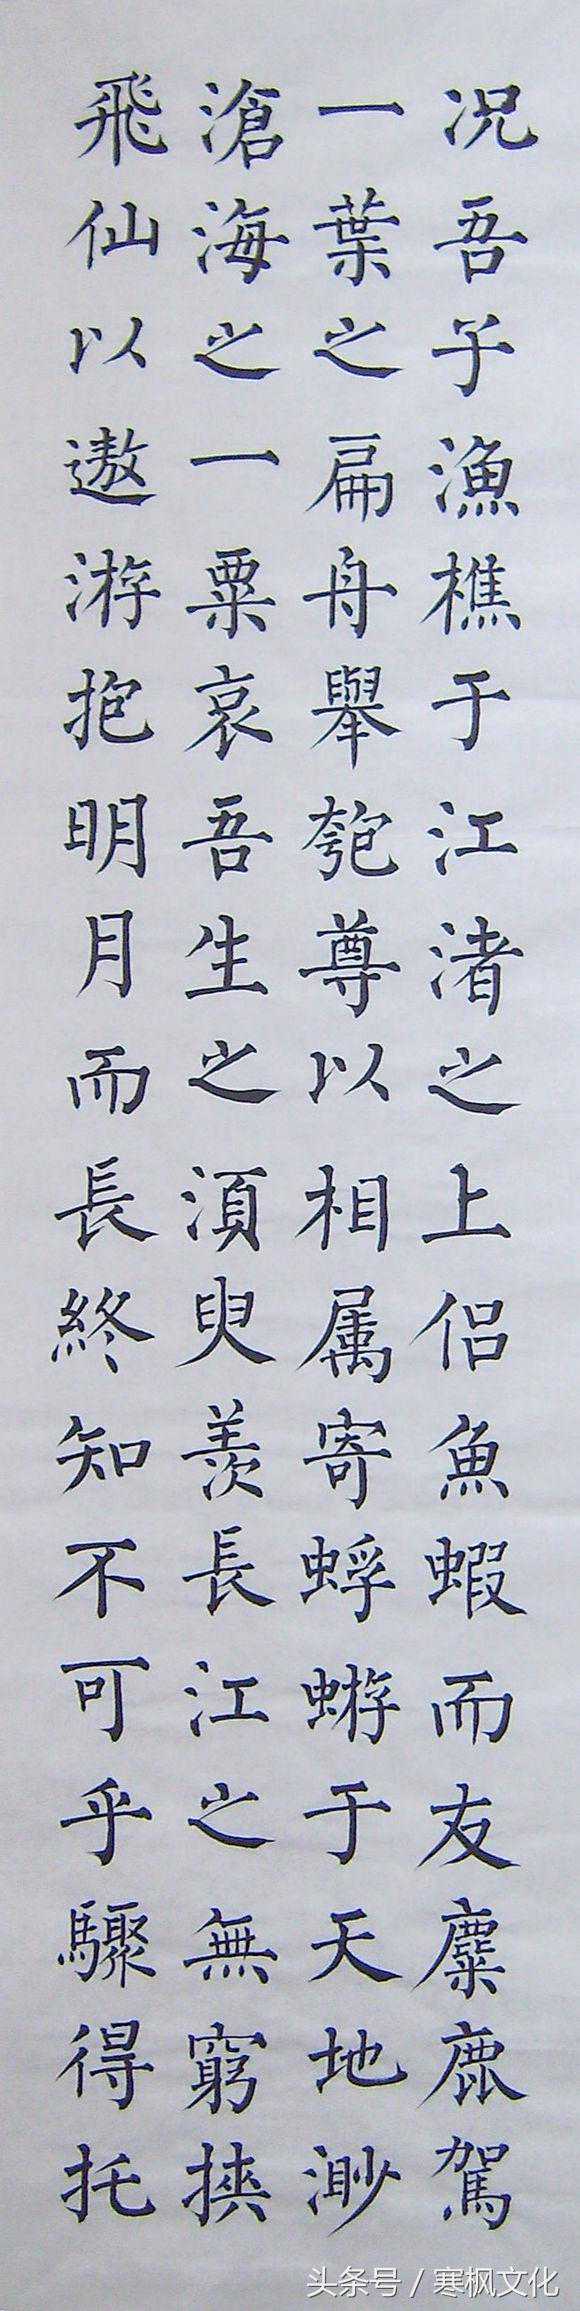 况吾子漁樵于江渚之上侣魚蝦而友麋鹿駕
一葉之扁舟舉匏尊以相属寄蜉蝣于天地渺
滄海之一粟哀吾生之須臾羡長江之無窮挾
飛仙以遨游抱明月而長終知不可乎驟得托
头条号 / 寒枫文化